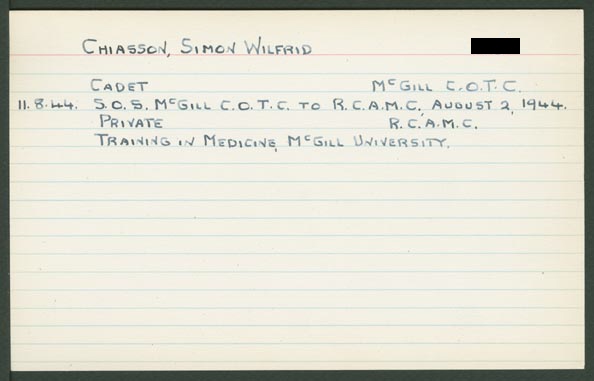 CHIASSON, SIMON WILFRID
CADET McGILL C.O.T.C.
11.8.44. S.O.S. McGILL C.O.T.C. TO R.C.A.M.C, AUGUST 2, 1944.
PRIVATE R.C.A.M.C.
TRAINING IN MEDICINE, McGILL UNIVERSITY.